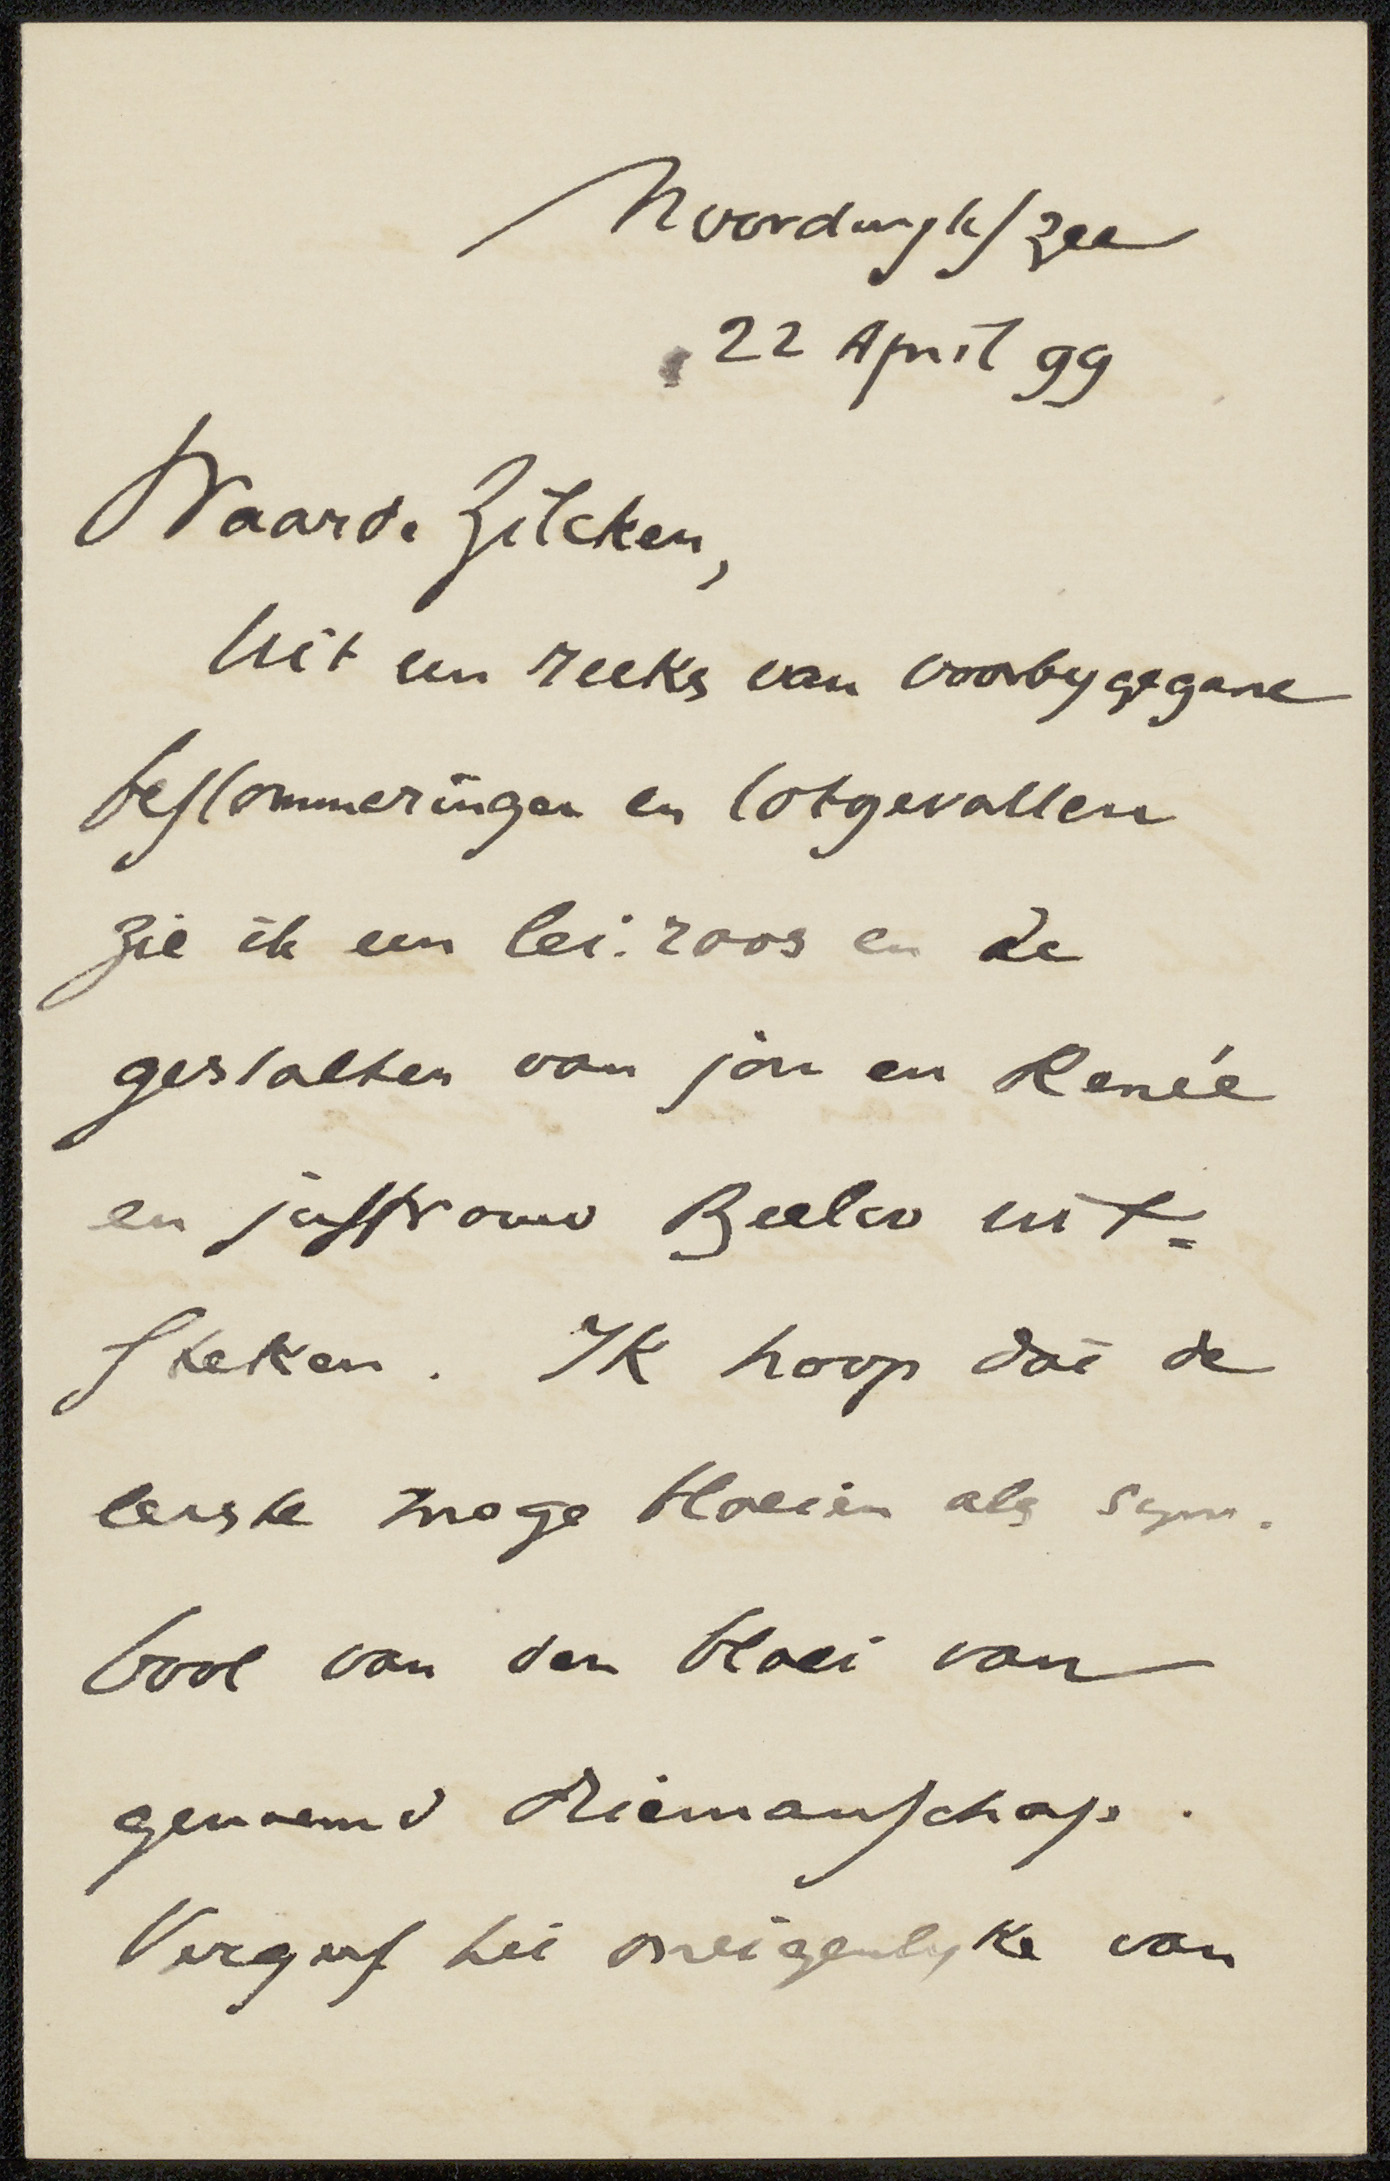 Noordwyk/zee
22 April 99
Waarde Zilcken,
Uit een reeks van voorbygegane
beslommeringen en lotgevallen
zie ik een lei-roos en de
gestalten van jou en Renée
en juffrouw Beelo uit=
steken. Ik hoop dat de
eerste moge bloeien als sym-
bool van den bloei van
genoemd driemanschap.
Vergeef het oneigenlyke van